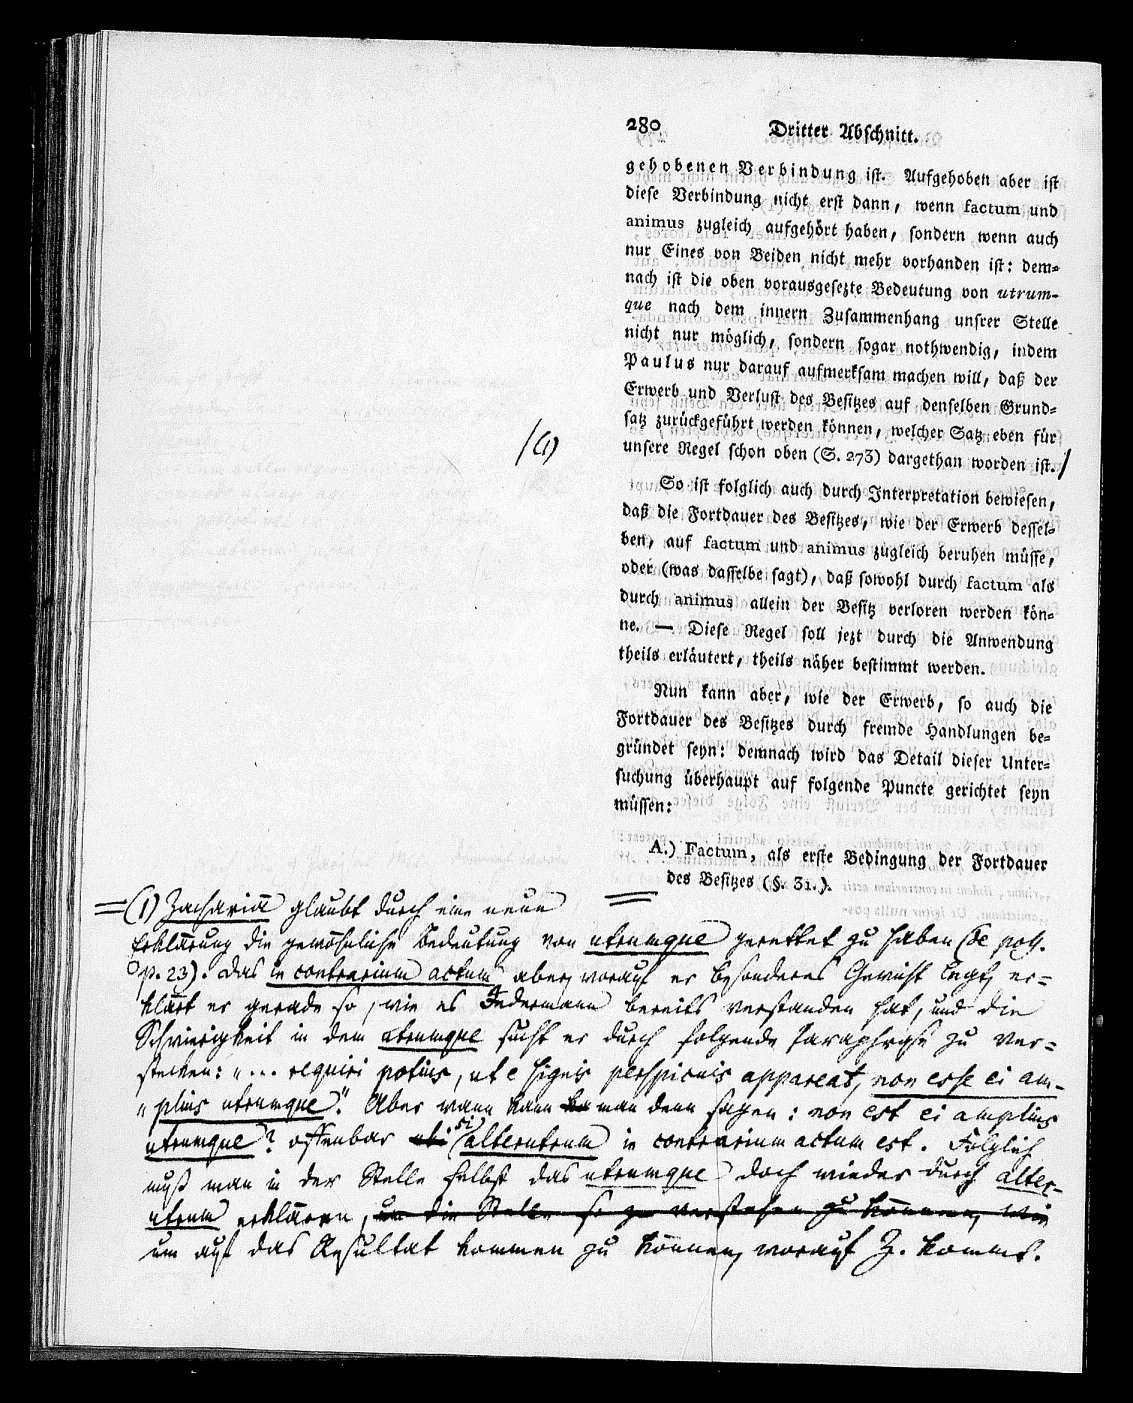 280 Dritter Abschnitt.
gehobenen Verbindung ist. Aufgehoben aber ist
diese Verbindung nicht erst dann, wenn factum und
animus zugleich aufgehört haben, sondern wenn auch
nur Eines von Beiden nicht mehr vorhanden ist: dem-
nach ist die oben vorausgesezte Bedeutung von utrum-
que nach dem innern Zusammenhang unsrer Stelle
nicht nur möglich, sondern sogar nothwendig, indem
Paulus nur darauf aufmerksam machen will, daß der
Erwerb und Verlust des Besitzes auf denselben Grund-
satz zurückgeführt werden können, welcher Satz eben für
unsere Regel schon oben (S. 273) dargethan worden ist.
/(1)
So ist folglich auch durch Interpretation bewiesen,
daß die Fortdauer des Besitzes, wie der Erwerb dessel-
ben, auf factum und animus zugleich beruhen müsse,
oder (was dasselbe sagt), daß sowohl durch factum als
durch animus allein der Besitz verloren werden kön-
ne. — Diese Regel soll jezt durch die Anwendung
theils erläutert, theils näher bestimmt werden.
Nun kann aber, wie der Erwerb, so auch die
Fortdauer des Besitzes durch fremde Handlungen be-
gründet seyn: demnach wird das Detail dieser Unter-
suchung überhaupt auf folgende Puncte gerichtet seyn
müssen:
A.) Factum, als erste Bedingung der Fortdauer
des Besitzes (§. 31.).
(1) Zachariä glaubt durch eine neue
Erklärung die gewöhnliche Bedeutung von utrumque gerettet zu haben (de poss.
p. 23). Das in contrarium actum aber, worauf er besonderes Gewicht legt, er-
klärt er gerade so, wie es Jedermann bereits verstanden hat, und die
Schwierigkeit in dem utrumque sucht er durch folgende Paraphrase zu ver-
stecken: „... requiri potius, ut e signis perspicuis appareat, non esse ei am-
„plius utrumque". Aber wann kann man denn sagen: non est ei amplius
utrumque? offenbar si alterutrum in contrarium actum est. Folglich
muß man in der Stelle selbst das utrumque doch wieder durch alter-
utrum erklären, um die Stelle so zu verstehen zu können, wie
um auf das Resultat kommen zu können, worauf Z. kommt.